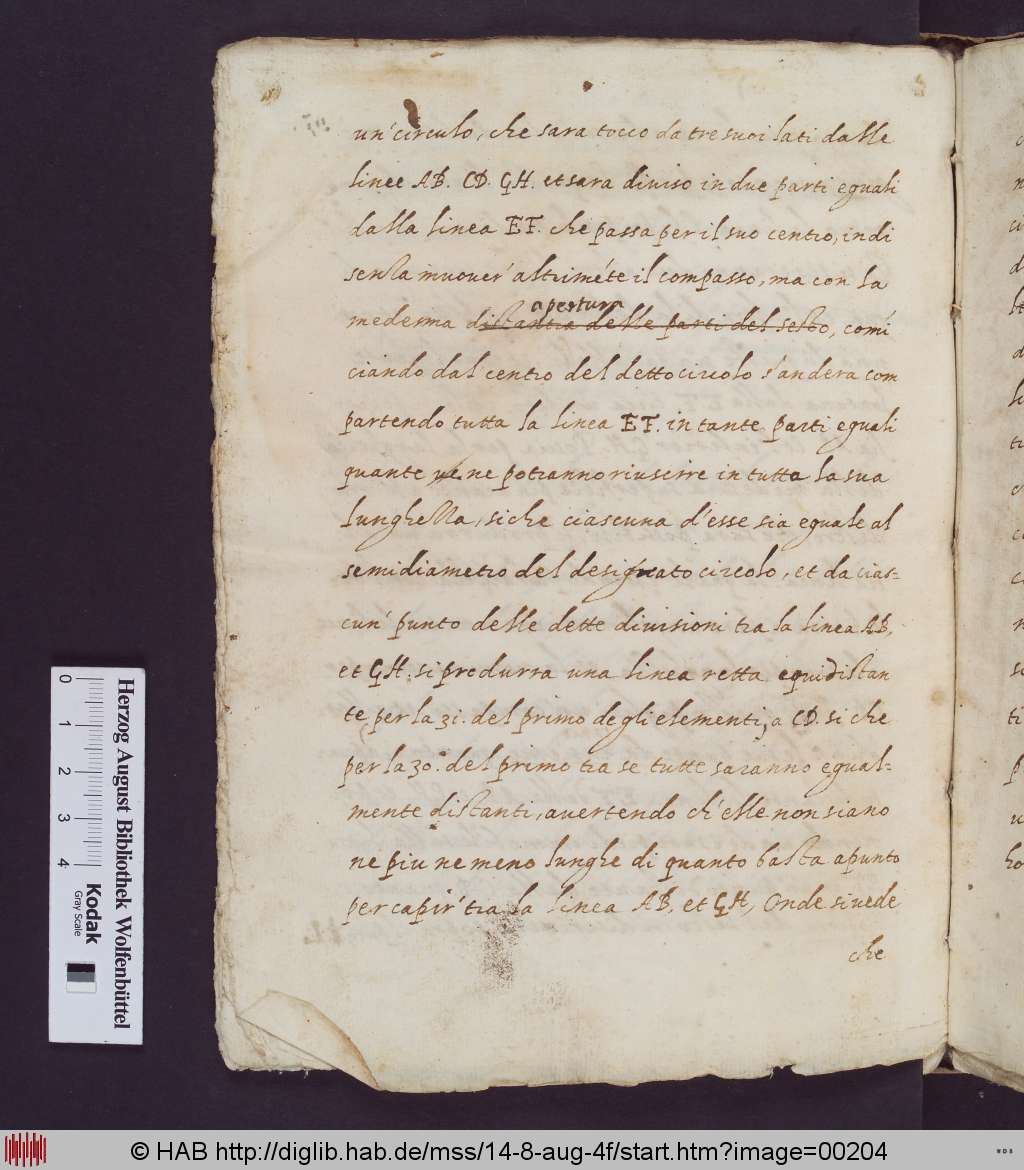 un'circulo, che sara tocco da tre suoi lati dalle
linee AB. CD. GH. et sara diviso in due parti eguali
dalla linea EF. che passa per il suo centro, indi
senza muover' altrimẽte il compasso, ma con la
apertura
medesma distantia delle parti del sesto, comĩ
ciando dal centro del detto circolo s'andera com
partendo tutta la linea EF. in tante parti eguali
quante ve ne potranno riuscire in tutta la sua
lunghezza, si che ciascuna d'esse sia eguale al
semidiametro del designato circolo, et da cias=
cun' punto delle dette divisioni tra la linea AB,
et GH. si produrra una linea retta equidistan
te per la 31. del primo degli elementi, a CD. si che
per la 30. del primo tra se tutte saranno egual=
mente distanti, avertendo ch'elle non siano
ne piu ne meno lunghe di quanto basta apunto
per capir' tra la linea AB. et GH, Onde si vede
che
Herzog August Bibliothek Wolfenbüttel
Kodak
Gray Scale
0 1 2 3 4
© HAB http://diglib.hab.de/mss/14-8-aug-4f/start.htm?image=00204